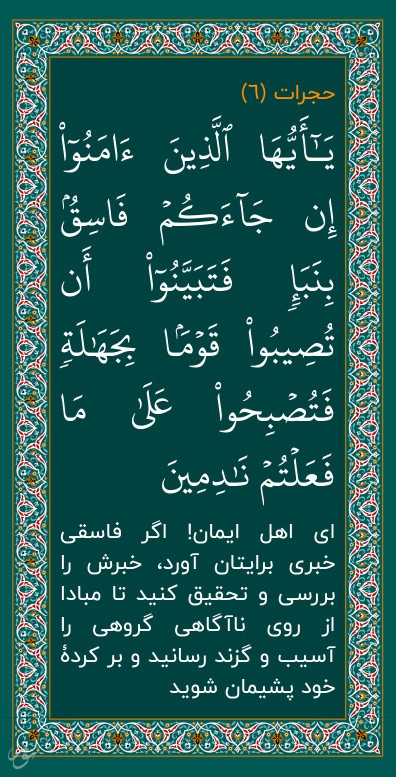 حجرات (٦)
يَـٰٓأَيُّهَا ٱلَّذِينَ ءَامَنُوٓا۟
إِن جَآءَكُمْ فَاسِقٌۢ
بِنَبَإٍ فَتَبَيَّنُوٓا۟ أَن
تُصِيبُوا۟ قَوْمًۢا بِجَهَـٰلَةٍ
فَتُصْبِحُوا۟ عَلَىٰ مَا
فَعَلْتُمْ نَـٰدِمِينَ
ای اهل ایمان! اگر فاسقی
خبری برایتان آورد، خبرش را
بررسی و تحقیق کنید تا مبادا
از روی ناآگاهی گروهی را
آسیب و گزند رسانید و بر کردهٔ
خود پشیمان شوید